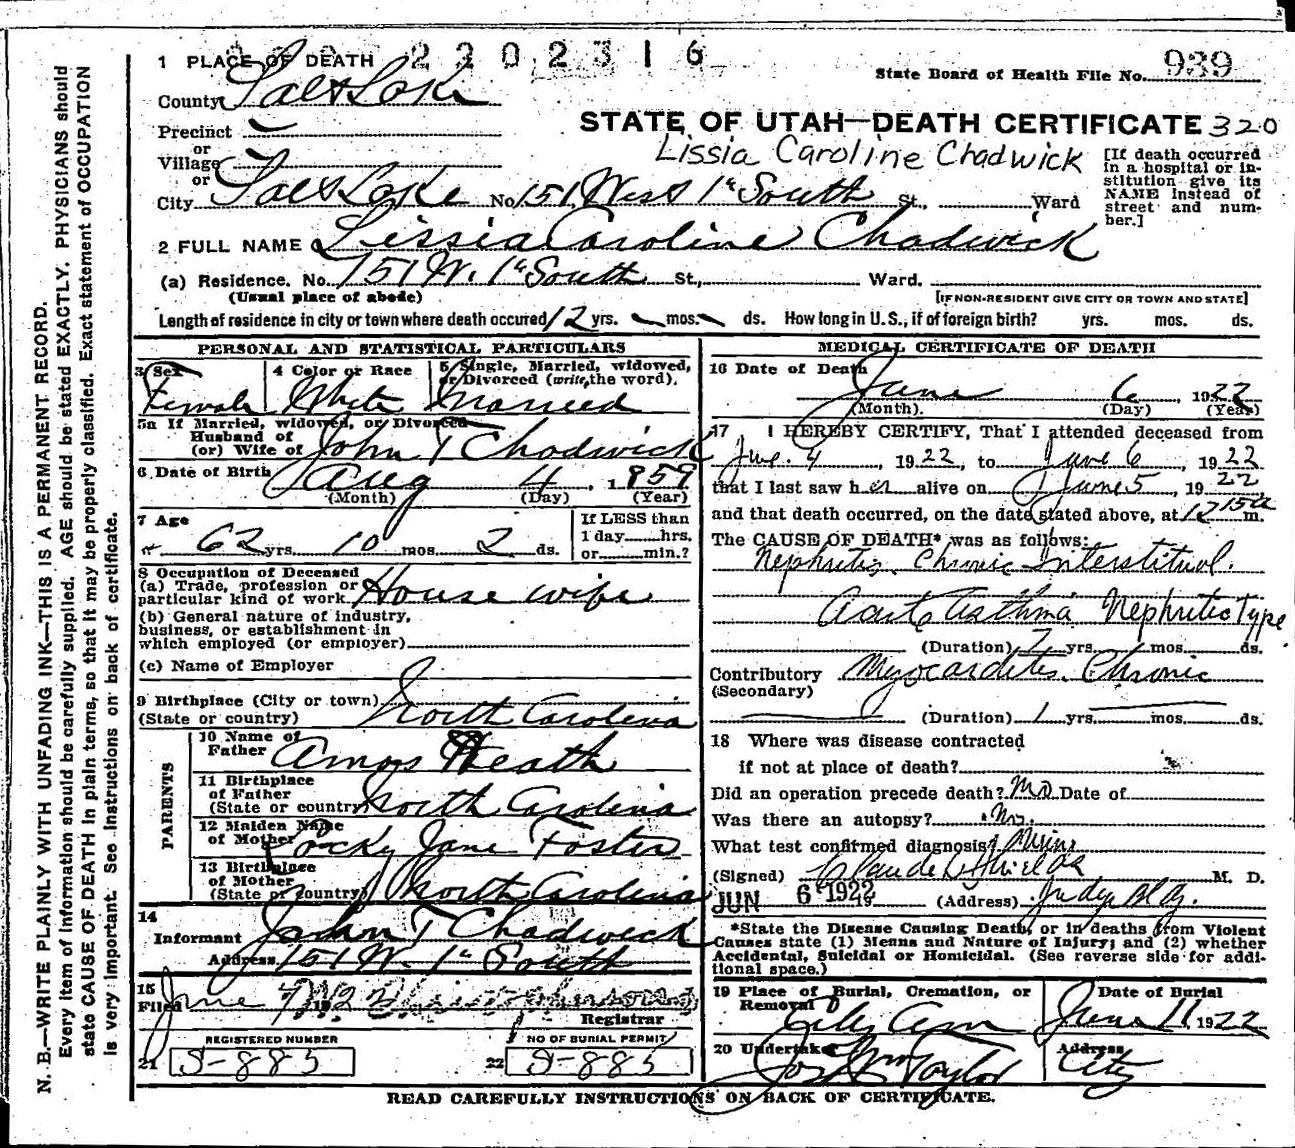 2202316
1 PLACE OF DEATH
State Board of Health File No. 939
County Salt Lake
STATE OF UTAH—DEATH CERTIFICATE 320
Precinct
or
Village
or
Lissia Caroline Chadwick
City Salt Lake No. 151 West 1st South St., Ward
[If death occurred
in a hospital or in-
stitution give its
NAME instead of
street and num-
ber.]
2 FULL NAME Lissia Caroline Chadwick
(a) Residence. No. 151 W. 1st South St., Ward.
(Usual place of abode) [IF NON-RESIDENT GIVE CITY OR TOWN AND STATE]
Length of residence in city or town where death occured 12 yrs. mos. ds. How long in U.S., if of foreign birth? yrs. mos. ds.
PERSONAL AND STATISTICAL PARTICULARS
3 Sex 4 Color or Race 5 Single, Married, widowed,
or Divorced (write the word).
Female White Married
5a If Married, widowed, or Divorced
Husband of
(or) Wife of John T Chadwick
6 Date of Birth Aug 4, 1859
(Month) (Day) (Year)
7 Age If LESS than
62 yrs. 10 mos. 2 ds. 1 day hrs.
or min.?
8 Occupation of Deceased
(a) Trade, profession or
particular kind of work House wife
(b) General nature of industry,
business, or establishment in
which employed (or employer)
(c) Name of Employer
9 Birthplace (City or town)
(State or country) North Carolina
PARENTS
10 Name of
Father Amos Heath
11 Birthplace
of Father
(State or country) North Carolina
12 Maiden Name
of Mother Jane Foster
13 Birthplace
of Mother
(State or country) North Carolina
14
Informant John T Chadwick
Address 151 W. 1st South
15
Filed June
Registrar
REGISTERED NUMBER NO OF BURIAL PERMIT
21 S-885 22 S-885
MEDICAL CERTIFICATE OF DEATH
16 Date of Death
June 6 1922
(Month). (Day) (Year)
17 I HEREBY CERTIFY, That I attended deceased from
June 4, 1922, to June 6, 1922
that I last saw her alive on June 5, 1922
and that death occurred, on the date stated above, at 1215a m.
The CAUSE OF DEATH* was as follows:
Nephritis Chronic Interstitial.
Acute Asthma Nephritic Type
(Duration) 7 yrs. mos. ds.
Contributory Myocarditis. Chronic
(Secondary)
(Duration) 1 yrs. mos. ds.
18 Where was disease contracted
if not at place of death?
Did an operation precede death? No Date of
Was there an autopsy? No.
What test confirmed diagnosis? Urine
(Signed) Claude L Shields M. D.
JUN 6 1922 (Address) Judge Bldg.
*State the Disease Causing Death, or in deaths from Violent
Causes state (1) Means and Nature of Injury; and (2) whether
Accidental, Suicidal or Homicidal. (See reverse side for addi-
tional space.)
19 Place of Burial, Cremation, or Date of Burial
Removal City Cem June 11, 1922
20 Undertaker Address
Jos Wm Taylor City
READ CAREFULLY INSTRUCTIONS ON BACK OF CERTIFICATE.
N. B.—WRITE PLAINLY WITH UNFADING INK—THIS IS A PERMANENT RECORD.
Every item of information should be carefully supplied. AGE should be stated EXACTLY. PHYSICIANS should
state CAUSE OF DEATH in plain terms, so that it may be properly classified. Exact statement of OCCUPATION
is very important. See instructions on back of certificate.